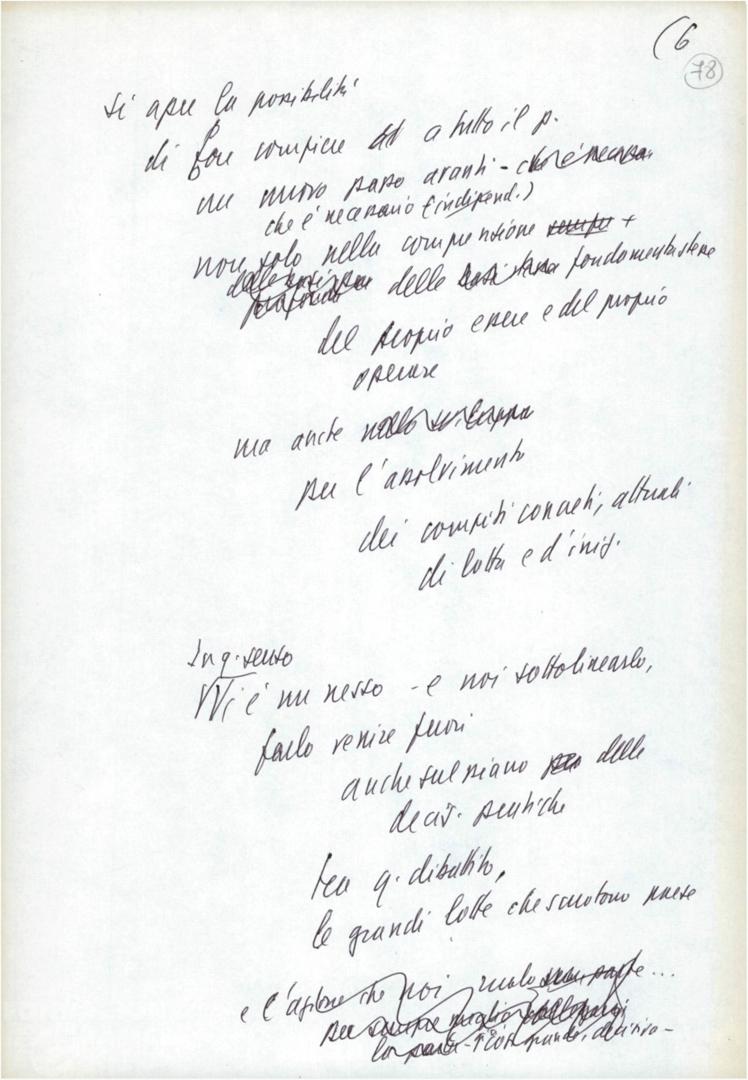 (6
78
Si apre la possibilità
di far compiere a tutto il p.
un nuovo passo avanti - che è necess.
che è necessario (indipend.)
non solo nella comprensione sempre +
delle basi fondamentali
del proprio essere e del proprio
operare
ma anche nello sviluppo
per l'assolvimento
dei compiti concreti, attuali
di lotta e d'iniz.
In q. senso
Vi è un nesso - e noi sottolinearlo,
farlo venire fuori
anche sul piano delle
decis. pratiche
tra q. dibattito,
le grandi lotte che scuotono paese
e l'azione che noi